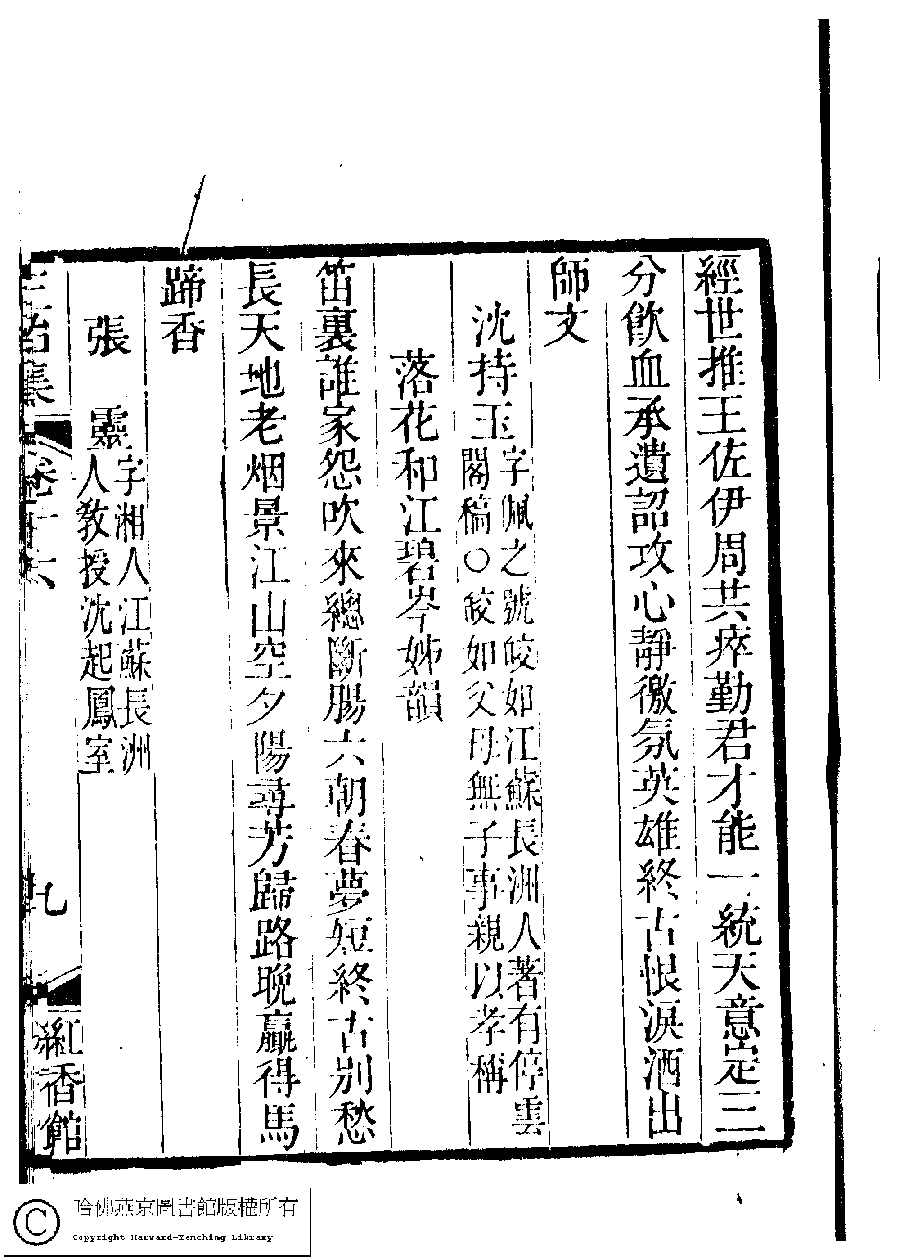 經世推王佐伊周共瘁勤君才能一統天意定三
分飲血承遺詔攻心靜徼氛英雄終古恨淚洒出
師文
沈持玉
字佩之號皎如江蘇長洲人著有停雲
閣稿○皎如父母無子事親以孝稱
落花和江碧岑姊韻
笛裏誰家怨吹來總斷腸六朝春夢短終古別愁
長天地老烟景江山空夕陽尋芳歸路晚贏得馬
蹄香
張靈
字湘人江蘇長洲
人教授沈起鳳室
卷十六
九
紅香館
哈佛燕京圖書館版權所有
Copyright Harvard-Yenching Library